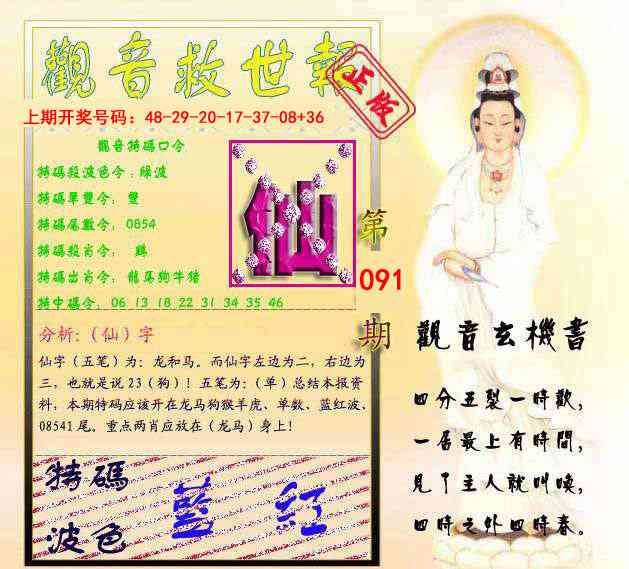 觀音救世報
正版
上期开奖号码：48-29-20-17-37-08+36
觀音特碼口令
特碼殺波色令：綠波
特碼單雙令：雙
特碼尾數令：0854
特碼殺肖令：鷄
特碼出肖令：龍馬狗牛豬
特中碼令：06 13 18 22 31 34 35 46
仙
第
091
期
分析:（仙）字
仙字（五笔）为：龙和马。而仙字左边为二，右边为
三，也就是说 23（狗）！五笔为：（单）总结本报资
料，本期特码应该开在龙马狗猴羊虎、单数、蓝红波、
08541 尾。重点两肖应放在（龙马）身上！
特碼
波色
藍 紅
觀音玄機書
四分五裂一時歡，
一居最上有時間，
見了主人就叫喚，
四時之外四時春。